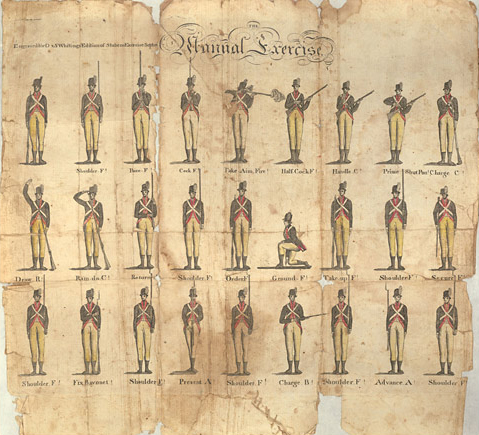 THE
Manual Exercise.
Shoulder F!
Poise F!
Cock F!
Take Aim, Fire!
Half Cock F!
Handle C!
Prime!
Shut Pan!
Charge C!
Draw R!
Ram do. C!
Return
Shoulder F!
Order F!
Ground F!
Take up F!
Shoulder F!
Secure F!
Shoulder F!
Fix Bayonet!
Shoulder F!
Present A!
Shoulder F!
Charge B!
Shoulder F!
Advance A!
Shoulder F!